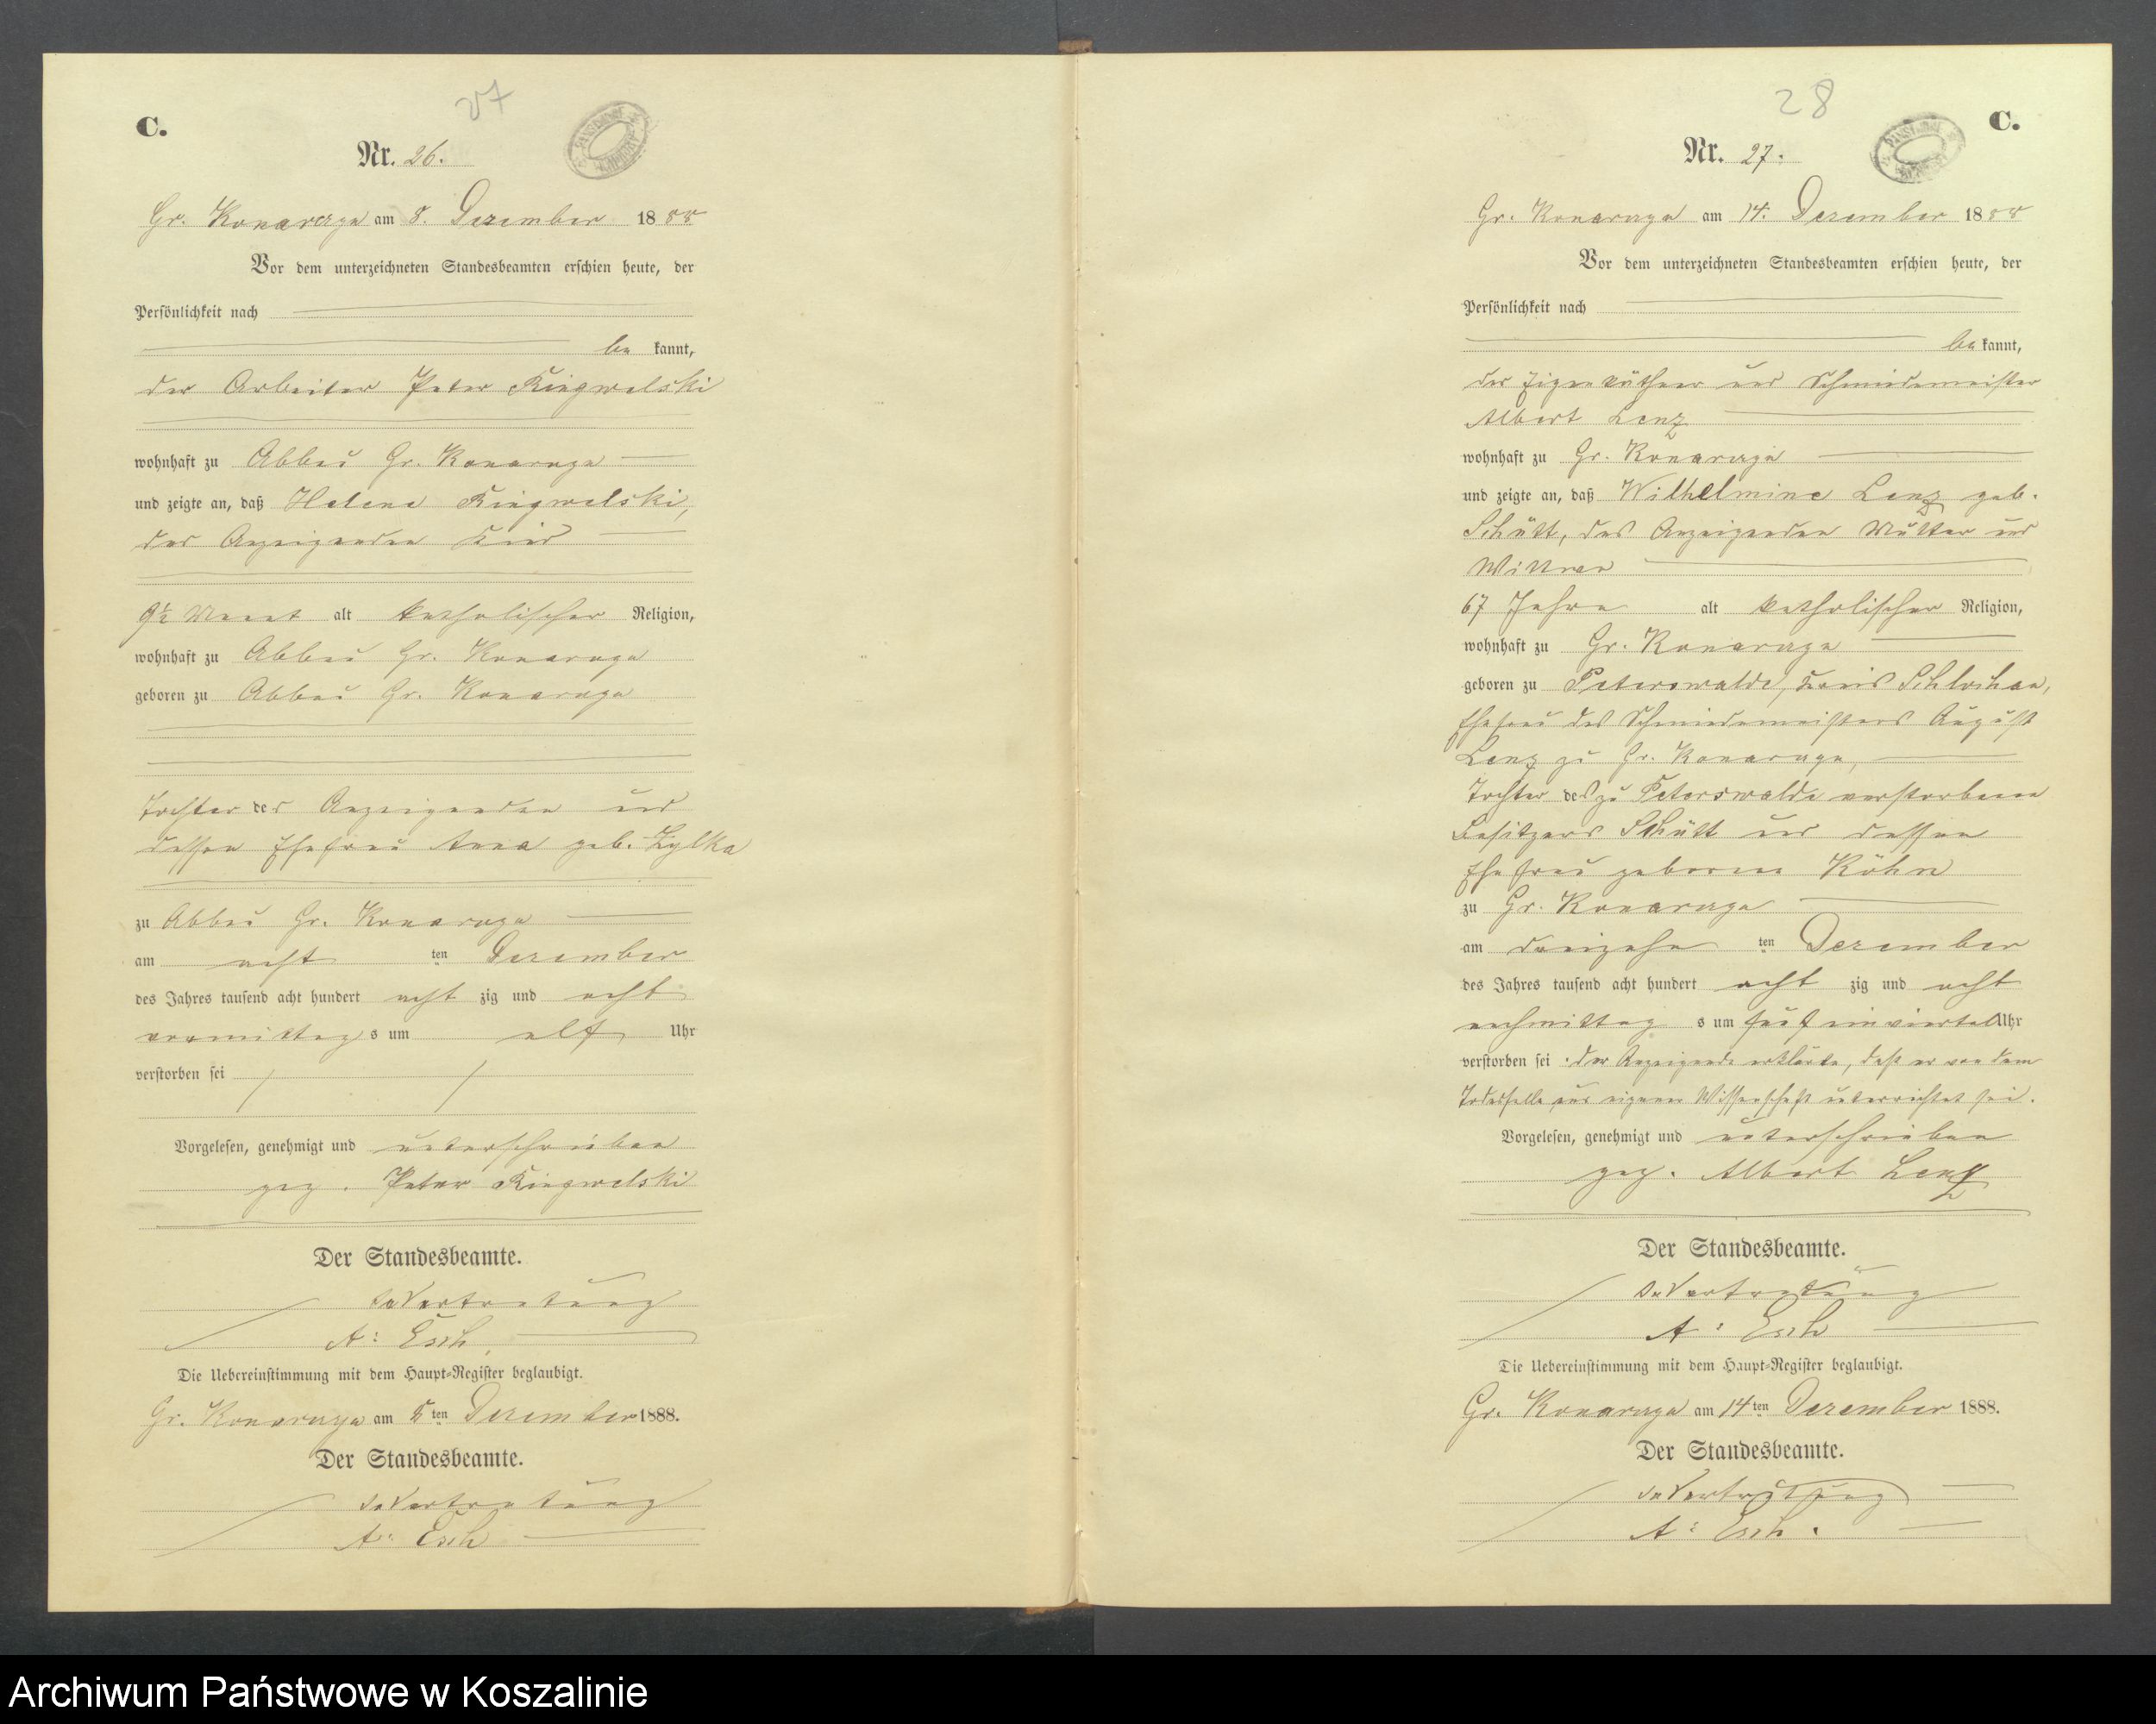 27
C.
Nr. 26.
Gr. Konarzyn am 8. Dezember 1888
Vor dem unterzeichneten Standesbeamten erschien heute, der
Persönlichkeit nach
be kannt,
der Arbeiter Peter Kingwelski
wohnhaft zu Abbau Gr. Konarzyn
und zeigte an, daß Helene Kingwelski,
des Anzeigenden Kind
9½ Monat alt katholischer Religion,
wohnhaft zu Abbau Gr. Konarzyn
geboren zu Abbau Gr. Konarzyn
Tochter des Anzeigenden und
dessen Ehefrau Anna geb. Zylka
zu Abbau Gr. Konarzyn
am acht ten Dezember
des Jahres tausend acht hundert acht zig und acht
vormittag s um elf Uhr
verstorben sei
Vorgelesen, genehmigt und unterschrieben
gez. Peter Kingwelski
Der Standesbeamte.
In Vertretung
A: Esch
Die Uebereinstimmung mit dem Haupt-Register beglaubigt.
Gr. Konarzyn am 8 ten Dezember 1888.
Der Standesbeamte.
In Vertretung
A: Esch
28
C.
Nr. 27.
Gr. Konarzyn am 14. Dezember 1888
Vor dem unterzeichneten Standesbeamten erschien heute, der
Persönlichkeit nach
be kannt,
der Eigenkäthner und Schmiedemeister
Albert Lenz
wohnhaft zu Gr. Konarzyn
und zeigte an, daß Wilhelmine Lenz geb.
Schütt, des Anzeigenden Mutter und
Wittwe
67 Jahre alt katholischer Religion,
wohnhaft zu Gr. Konarzyn
geboren zu Peterswalde, Kreis Schlochau,
Ehefrau des Schmiedemeisters August
Lenz zu Gr. Konarzyn,
Tochter des zu Peterswalde verstorbenen
Besitzers Schütt und dessen
Ehefrau geborene Röhn
zu Gr. Konarzyn
am dreizehn ten Dezember
des Jahres tausend acht hundert acht zig und acht
nachmittag s um fünf einviertel Uhr
verstorben sei. der Anzeigende erklärte, daß er von dem
Todesfalle aus eigener Wissenschaft unterrichtet sei.
Vorgelesen, genehmigt und unterschrieben
gez. Albert Lenz
Der Standesbeamte.
In Vertretung
A: Esch
Die Uebereinstimmung mit dem Haupt-Register beglaubigt.
Gr. Konarzyn am 14 ten Dezember 1888.
Der Standesbeamte.
In Vertretung
A: Esch.
Archiwum Państwowe w Koszalinie